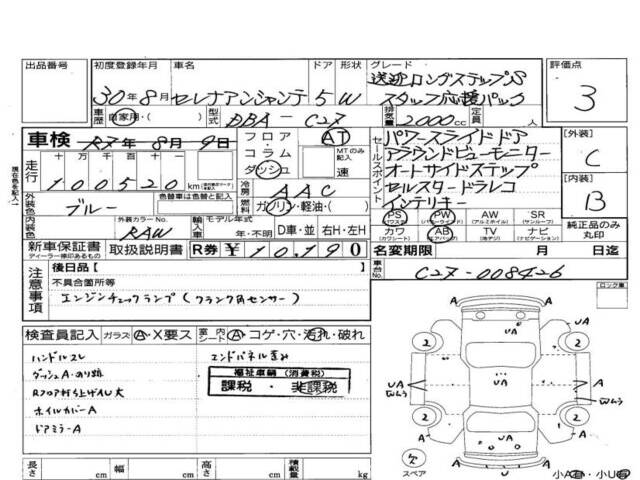 出品番号 初度登録年月 車名 ドア 形状 グレード 評価点
30年8月 セレナアンシャンテ 5 W 送迎ロングステップS
スタッフ応援パック
3
車歴 自家用・( ) 型式 DBA-C27 排気量 2000cc 定員
車検 R7年8月9日 フロア・コラム・ダッシュ AT
MTのみ記入 速
走行 十万 千 百 十
100520 km
外装色 ブルー 色替車は色替と記入
外装カラーNo. RAW
冷房 AAC
燃料 ガソリン・軽油・( )
輸入車 モデル年式 年・不明 D車・並 右H・左H
セールスポイント
パワースライドドア
アラウンドビューモニター
オートサイドステップ
セルスタードラレコ
インテリキー
PS PW AW SR
(パワステ) (パワーウィンドウ) (アルミホイル) (サンルーフ)
カワ AB TV ナビ
(カワシート) (エアバック) (地デジ) (ナビゲーション)
[外装] C
[内装] B
純正品のみ丸印
新車保証書 取扱説明書 R券 ¥10,190
ディーラー捺印あるもの
名変期限 月 日迄
車台No. C27-008426
注意事項
後日品[ ]
不具合箇所等
エンジンチェックランプ(クランク角センサー)
ロック車
検査員記入 ガラス A・X要ス 室内シート A・コゲ・穴・汚れ・破れ
ハンドルスレ
エンドパネル歪み
ダッシュA・のり跡
福祉車輌(消費税)
課税・非課税
Rフロア打ち上げAU大
ホイルカバーA
ドアミラーA
UA
A
UA
2 2
UA
A
2 2
A A
スペア
小A有・小U有
長さ cm 幅 cm 高さ cm 積載量 kg